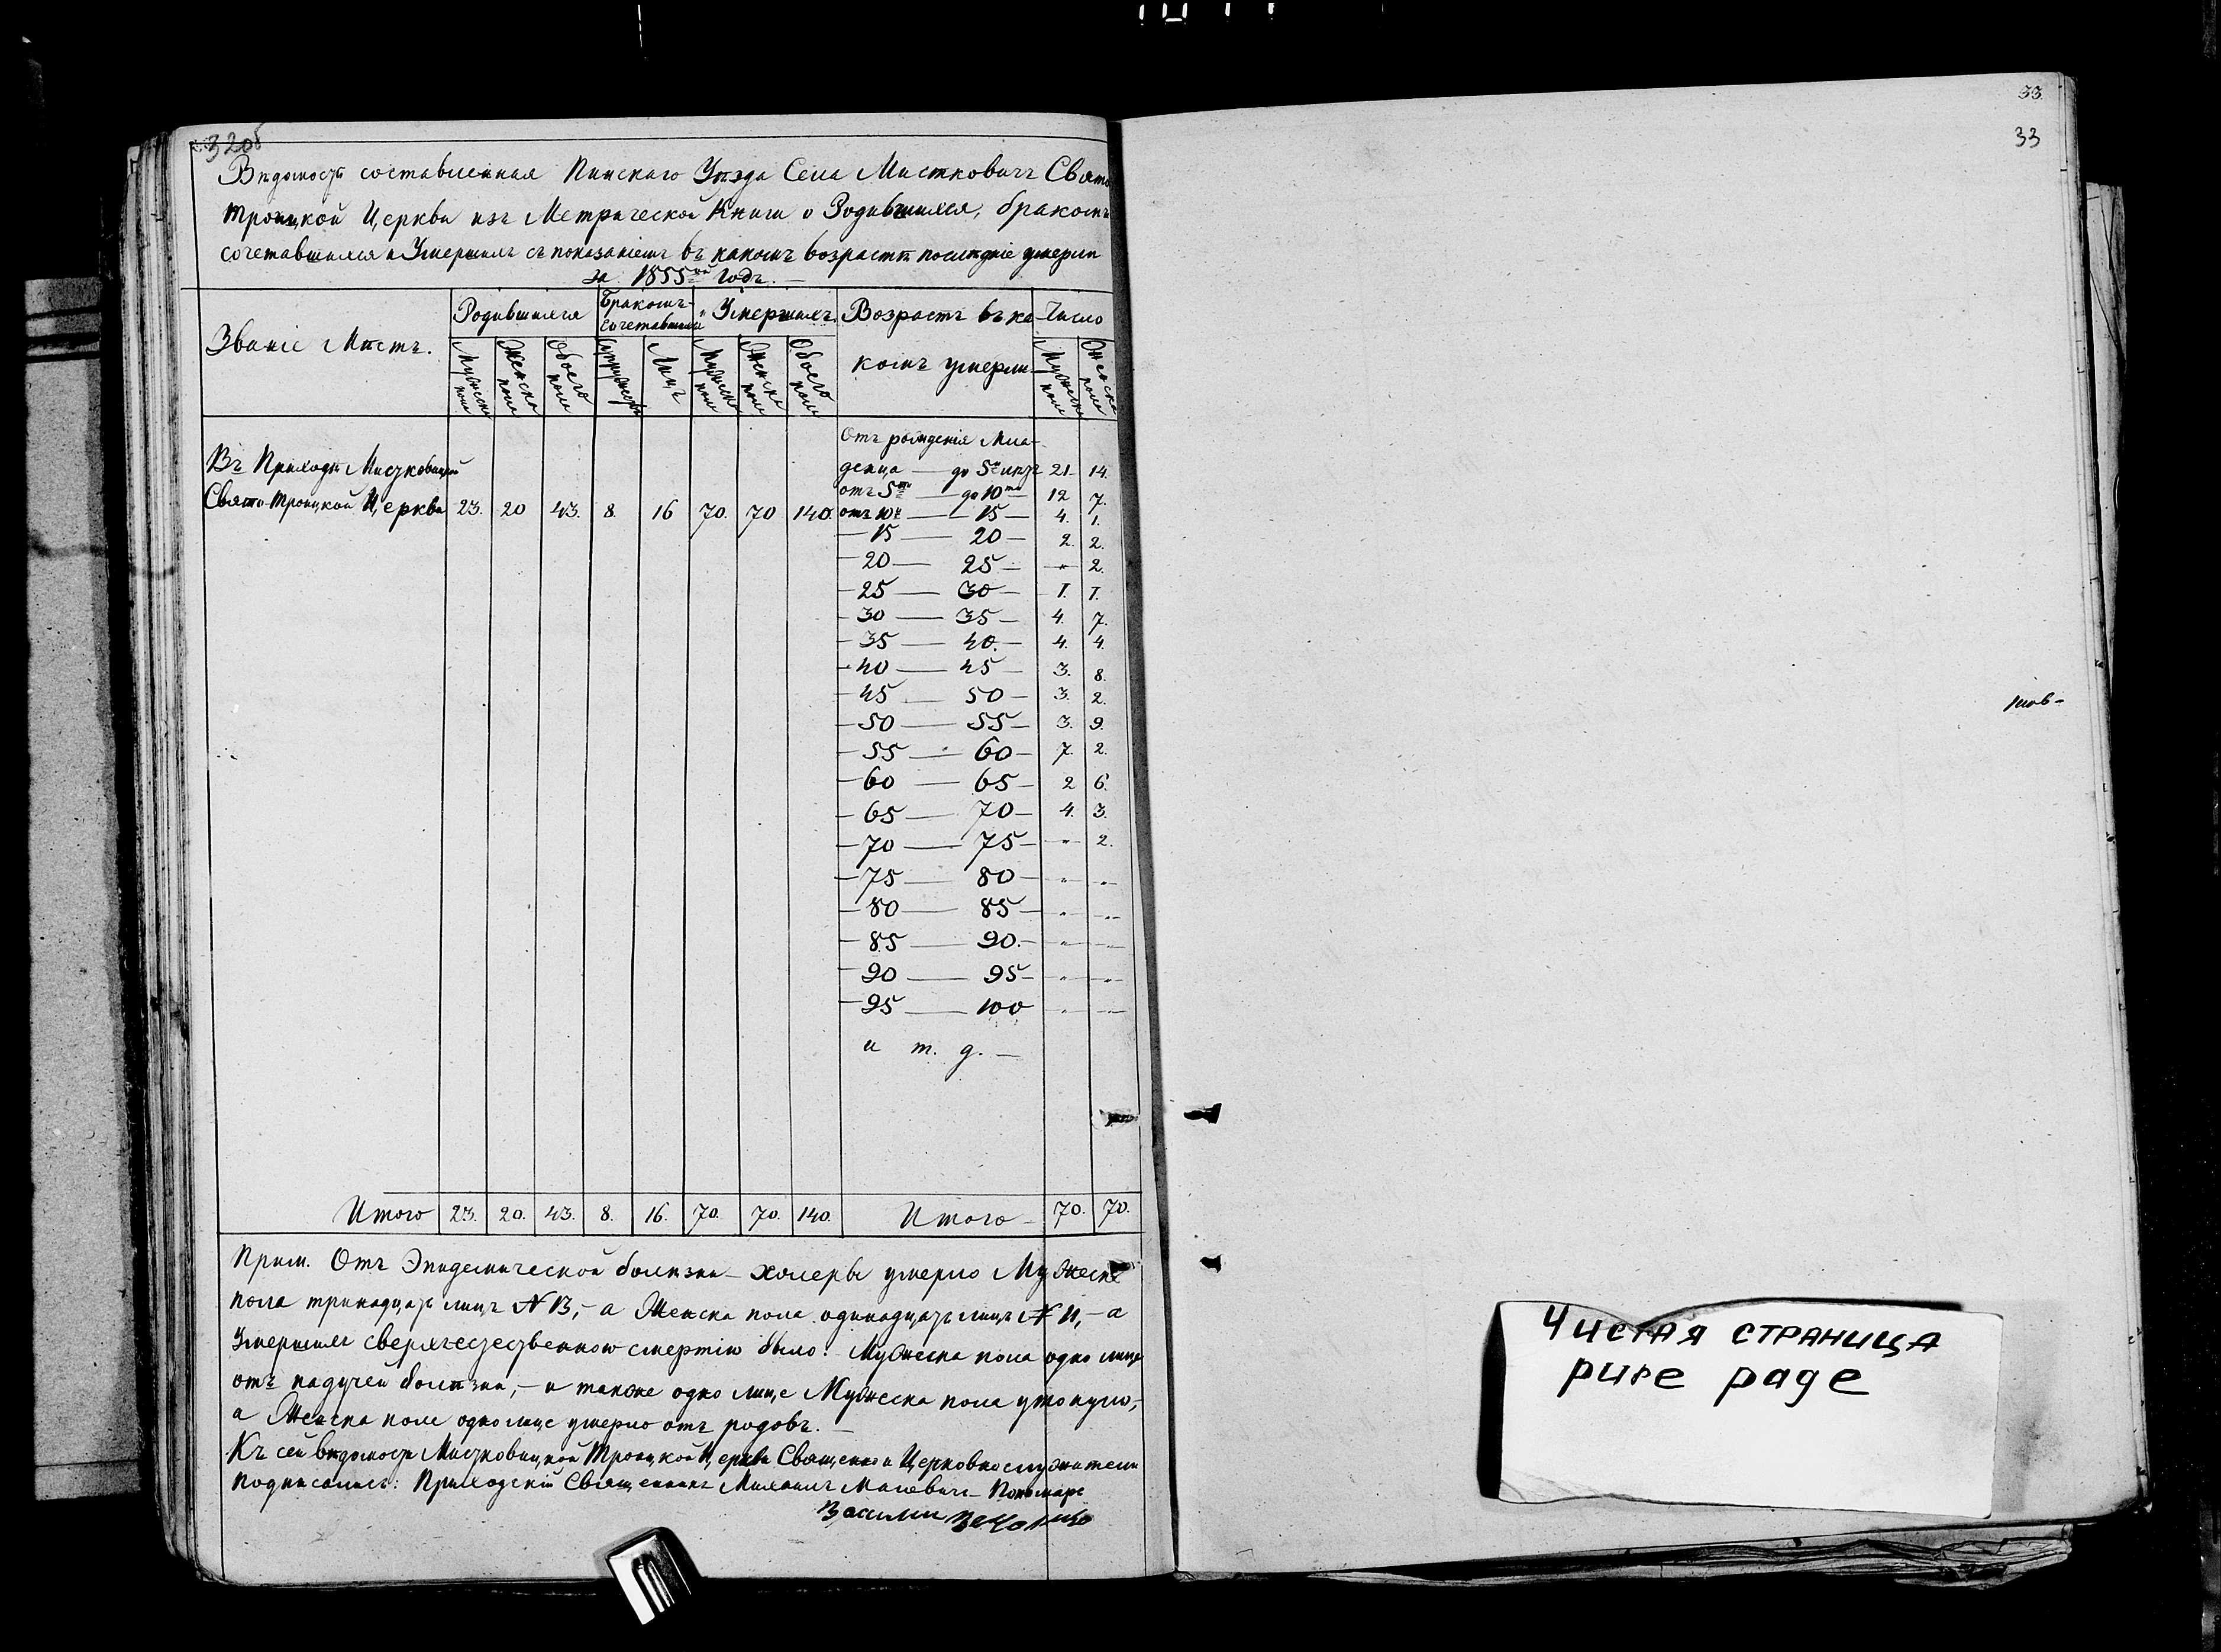 32об
Вѣдомость составленная Пинскаго Уѣзда Села Мистковичъ Свято
Троицкой Церкви изъ Метрической Книги о Родившихся, бракомъ
сочетавшихся и Умершихъ съ показаніемъ въ какомъ возрастѣ послѣдніе умерли
за 1855ый годъ. —
Званіе Мѣстъ.
Родившихся
Бракомъ-сочетавшихся
Умершихъ
Возрастъ въ ка-
комъ умерли
Число
Мужеска пола
Женска пола
Обоего пола
Лицъ
Мужеска пола
Женска пола
Обоего пола
Мужеска пола
Женска пола
Отъ рожденія Мла-
Въ Приходѣ Мистковицкой
денца — до 5ти лѣтъ 21. 14.
отъ 5ти — до 10ти 12 7.
Свято-Троицкой Церкви 23. 20 43. 8. 16 70. 70 140. отъ 10ти — 15 — 4. 1.
— 15 — 20 — 2. 2.
— 20 — 25 — „ 2.
— 25 — 30 — 1. 1.
— 30 — 35 — 4. 7.
— 35 — 40. — 4. 4.
— 40 — 45 — 3. 8.
— 45 — 50 — 3. 2.
— 50 — 55 — 3. 9.
— 55 — 60 — 7. 2.
— 60 — 65 — 2 6.
— 65 — 70 — 4. 3.
— 70 — 75 — „ 2.
— 75 — 80 — „ „
— 80 — 85 — „ „
— 85 — 90. — „ „
— 90 — 95 — „ „
— 95 — 100 „ „
и т. д. —
Итого 23. 20. 43. 8. 16. 70. 70. 140. Итого — 70. 70.
Прим. Отъ Эпидемической болѣзни — холеры умерло Мужеска
пола тринадцать лицъ № 13, — а Женска пола одинадцать лицъ № 11, — а
Умершихъ сверхъестественною смертію было: Мужеска пола одно лице
отъ падучей болѣзни, — и также одно лице Мужеска пола утонуло, —
а Женска пола одно лице умерло отъ родовъ. —
Къ сей вѣдомости Мистковицкой Троицкой Церкви Священно и Церковнослужители
подписались: Приходскій Священникъ Михаилъ Малевичъ — Пономарь
Василий
33.
33
Чистая страница
pure page